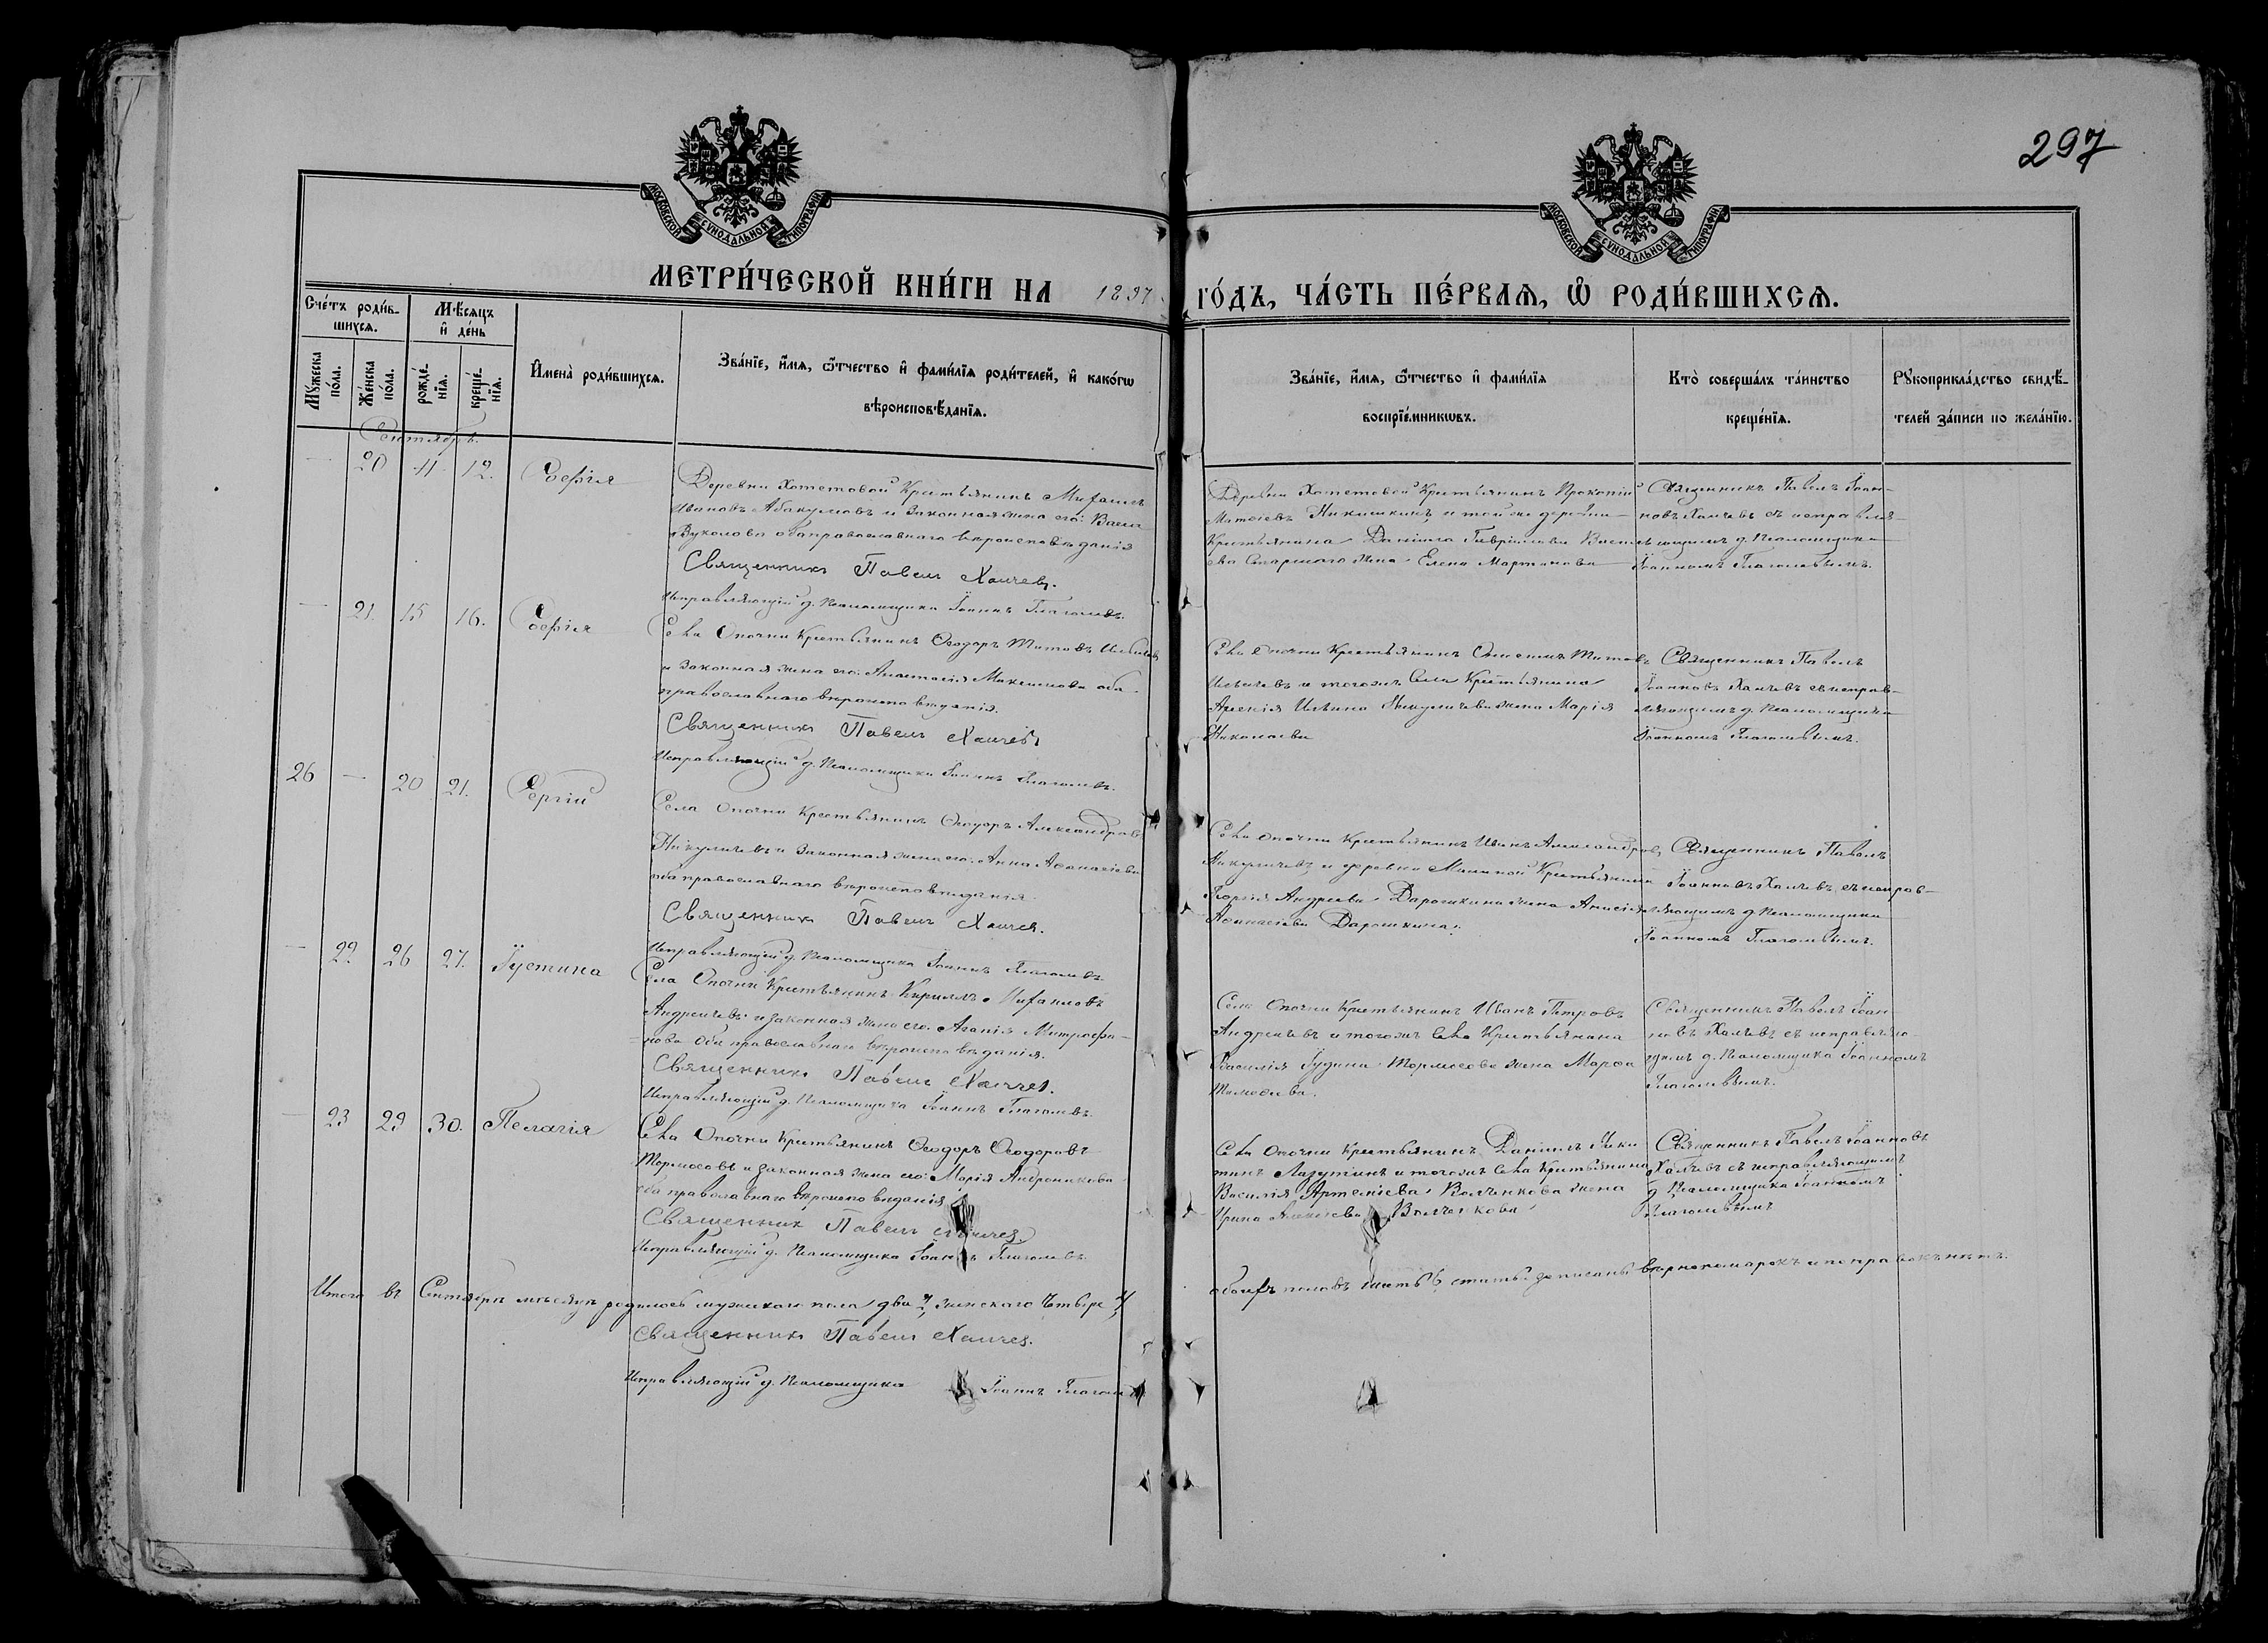 297
МОСКОВСКОЙ СУНОДАЛЬНОЙ ТИПОГРАФІИ
МОСКОВСКОЙ СУНОДАЛЬНОЙ ТИПОГРАФІИ
МЕТРИ́ЧЕСКОЙ КНИ́ГИ НА 1897 ГО́ДЪ, ЧА́СТЬ ПЕ́РВАѦ, Ѽ РОДИ́ВШИХСѦ.
Сче́тъ роди́в-
шихсѧ.
Мѣсѧцъ
и де́нь
Мꙋ́жеска по́ла.
Же́нска по́ла.
рожде́нїѧ.
креще́нїѧ.
Имена̀ роди́вшихсѧ.
Зва́нїе, и́мѧ, ѿтчество и фами́лїѧ роди́телей, и како́гѡ
вѣроисповѣ́данїѧ.
Зва́нїе, и́мѧ, ѿтчество и фами́лїѧ
воспрїе́мникѡвъ.
Кто̀ соверша́лъ та́инство
креще́нїѧ.
Рꙋкоприкла́дство свидѣ́-
телей за́писи по жела́нїю.
Сентябрь.
— 20 11 12. Софія
Деревни Хотетовой Крестьянинъ Михаилъ
Ивановъ Абакумовъ и Законная жена его:
Вуколова оба православнаго вѣроисповѣданія
Священникъ Павелъ Халчев.
Исправляющій д. Псаломщика Іоаннъ Глаголевъ.
Деревни Хотетовой Крестьянинъ Прокопій
Матѳіевъ Никишкинъ и той же деревни
Крестьянина Даніила Гавріилова
Старшаго жена Елена Мартинова
Священникъ Павелъ Іоан-
новъ Халчевъ съ исправля-
ющимъ д. Псаломщика
Іоанномъ Глаголевымъ.
— 21. 15 16. Софія
Села Опочни Крестьянинъ Ѳеодоръ Титовъ
и законная жена его: Анастасія Максимова оба
православнаго вѣроисповѣданія.
Священникъ Павелъ Халчев
Исправляющій д. Псаломщика Іоаннъ Глаголевъ.
Села Опочни Крестьянинъ Онисимъ Титовъ
и тогожъ Села Крестьянина
Арсенія Ильина Никуличева жена Марія
Николаева
Священникъ Павелъ
Іоанновъ Халчевъ съ исправ-
ляющимъ д. Псаломщика
Іоанномъ Глаголевымъ.
26 — 20 21. Сергій
Села Опочни Крестьянинъ Ѳеодоръ Александровъ
Никуличевъ и Законная жена его: Анна Аѳанасіева
оба православнаго вѣроисповѣданія
Священникъ Павелъ Халчев.
Исправляющій д. Псаломщика Іоаннъ Глаголевъ.
Села Опочни Крестьянинъ Иванъ Александровъ
Никуличевъ и деревни Крестьянина
Георгія Андреева Дарошкина жена Анисія
Аѳанасіева Дарошкина.
Священникъ Павелъ
Іоанновъ Халчевъ съ исправ-
ляющимъ д. Псаломщика
Іоанномъ Глаголевымъ.
— 22 26 27. Іустина
Села Опочни Крестьянинъ Кириллъ Михаиловъ
Андреичевъ и законная жена его: Агапія Митрофа-
нова оба православнаго вѣроисповѣданія.
Священникъ Павелъ Халчев.
Исправляющій д. Псаломщика Іоаннъ Глаголевъ.
Села Опочни Крестьянинъ Иванъ Петровъ
Андреичевъ и тогожъ Села Крестьянина
Василія Іудина Тормосова жена Марѳа
Тимоѳеева.
Священникъ Павелъ Іоан
новъ Халчевъ съ исправляю-
щимъ д. Псаломщика Іоанномъ
Глаголевымъ.
— 23 29 30. Пелагія
Села Опочни Крестьянинъ Ѳеодоръ Ѳеодоровъ
Тормосовъ и законная жена его: Марія Андроникова
оба православнаго вѣроисповѣданія
Священник Павелъ Халчев.
Исправляющій д. Псаломщика Іоаннъ Глаголевъ.
Села Опочни Крестьянинъ Даніилъ Ники
тинъ Лазутинъ и тогожъ Села Крестьянина
Василія Артеміева Волченкова жена
Ирина Алексѣева Волченкова
Священникъ Павелъ Іоанновъ
Халчевъ съ исправляющимъ
д. Псаломщика Іоанномъ
Глаголевымъ
Итого въ Сентябрѣ мѣсяцѣ родилось мужскаго пола два, женскаго Четыре 4, обоихъ половъ шесть 6, статьи записаны вѣрно помарокъ и поправокъ нѣтъ.
Священникъ Павелъ Халчев.
Исправляющій д. Псаломщика Іоаннъ Глаголевъ